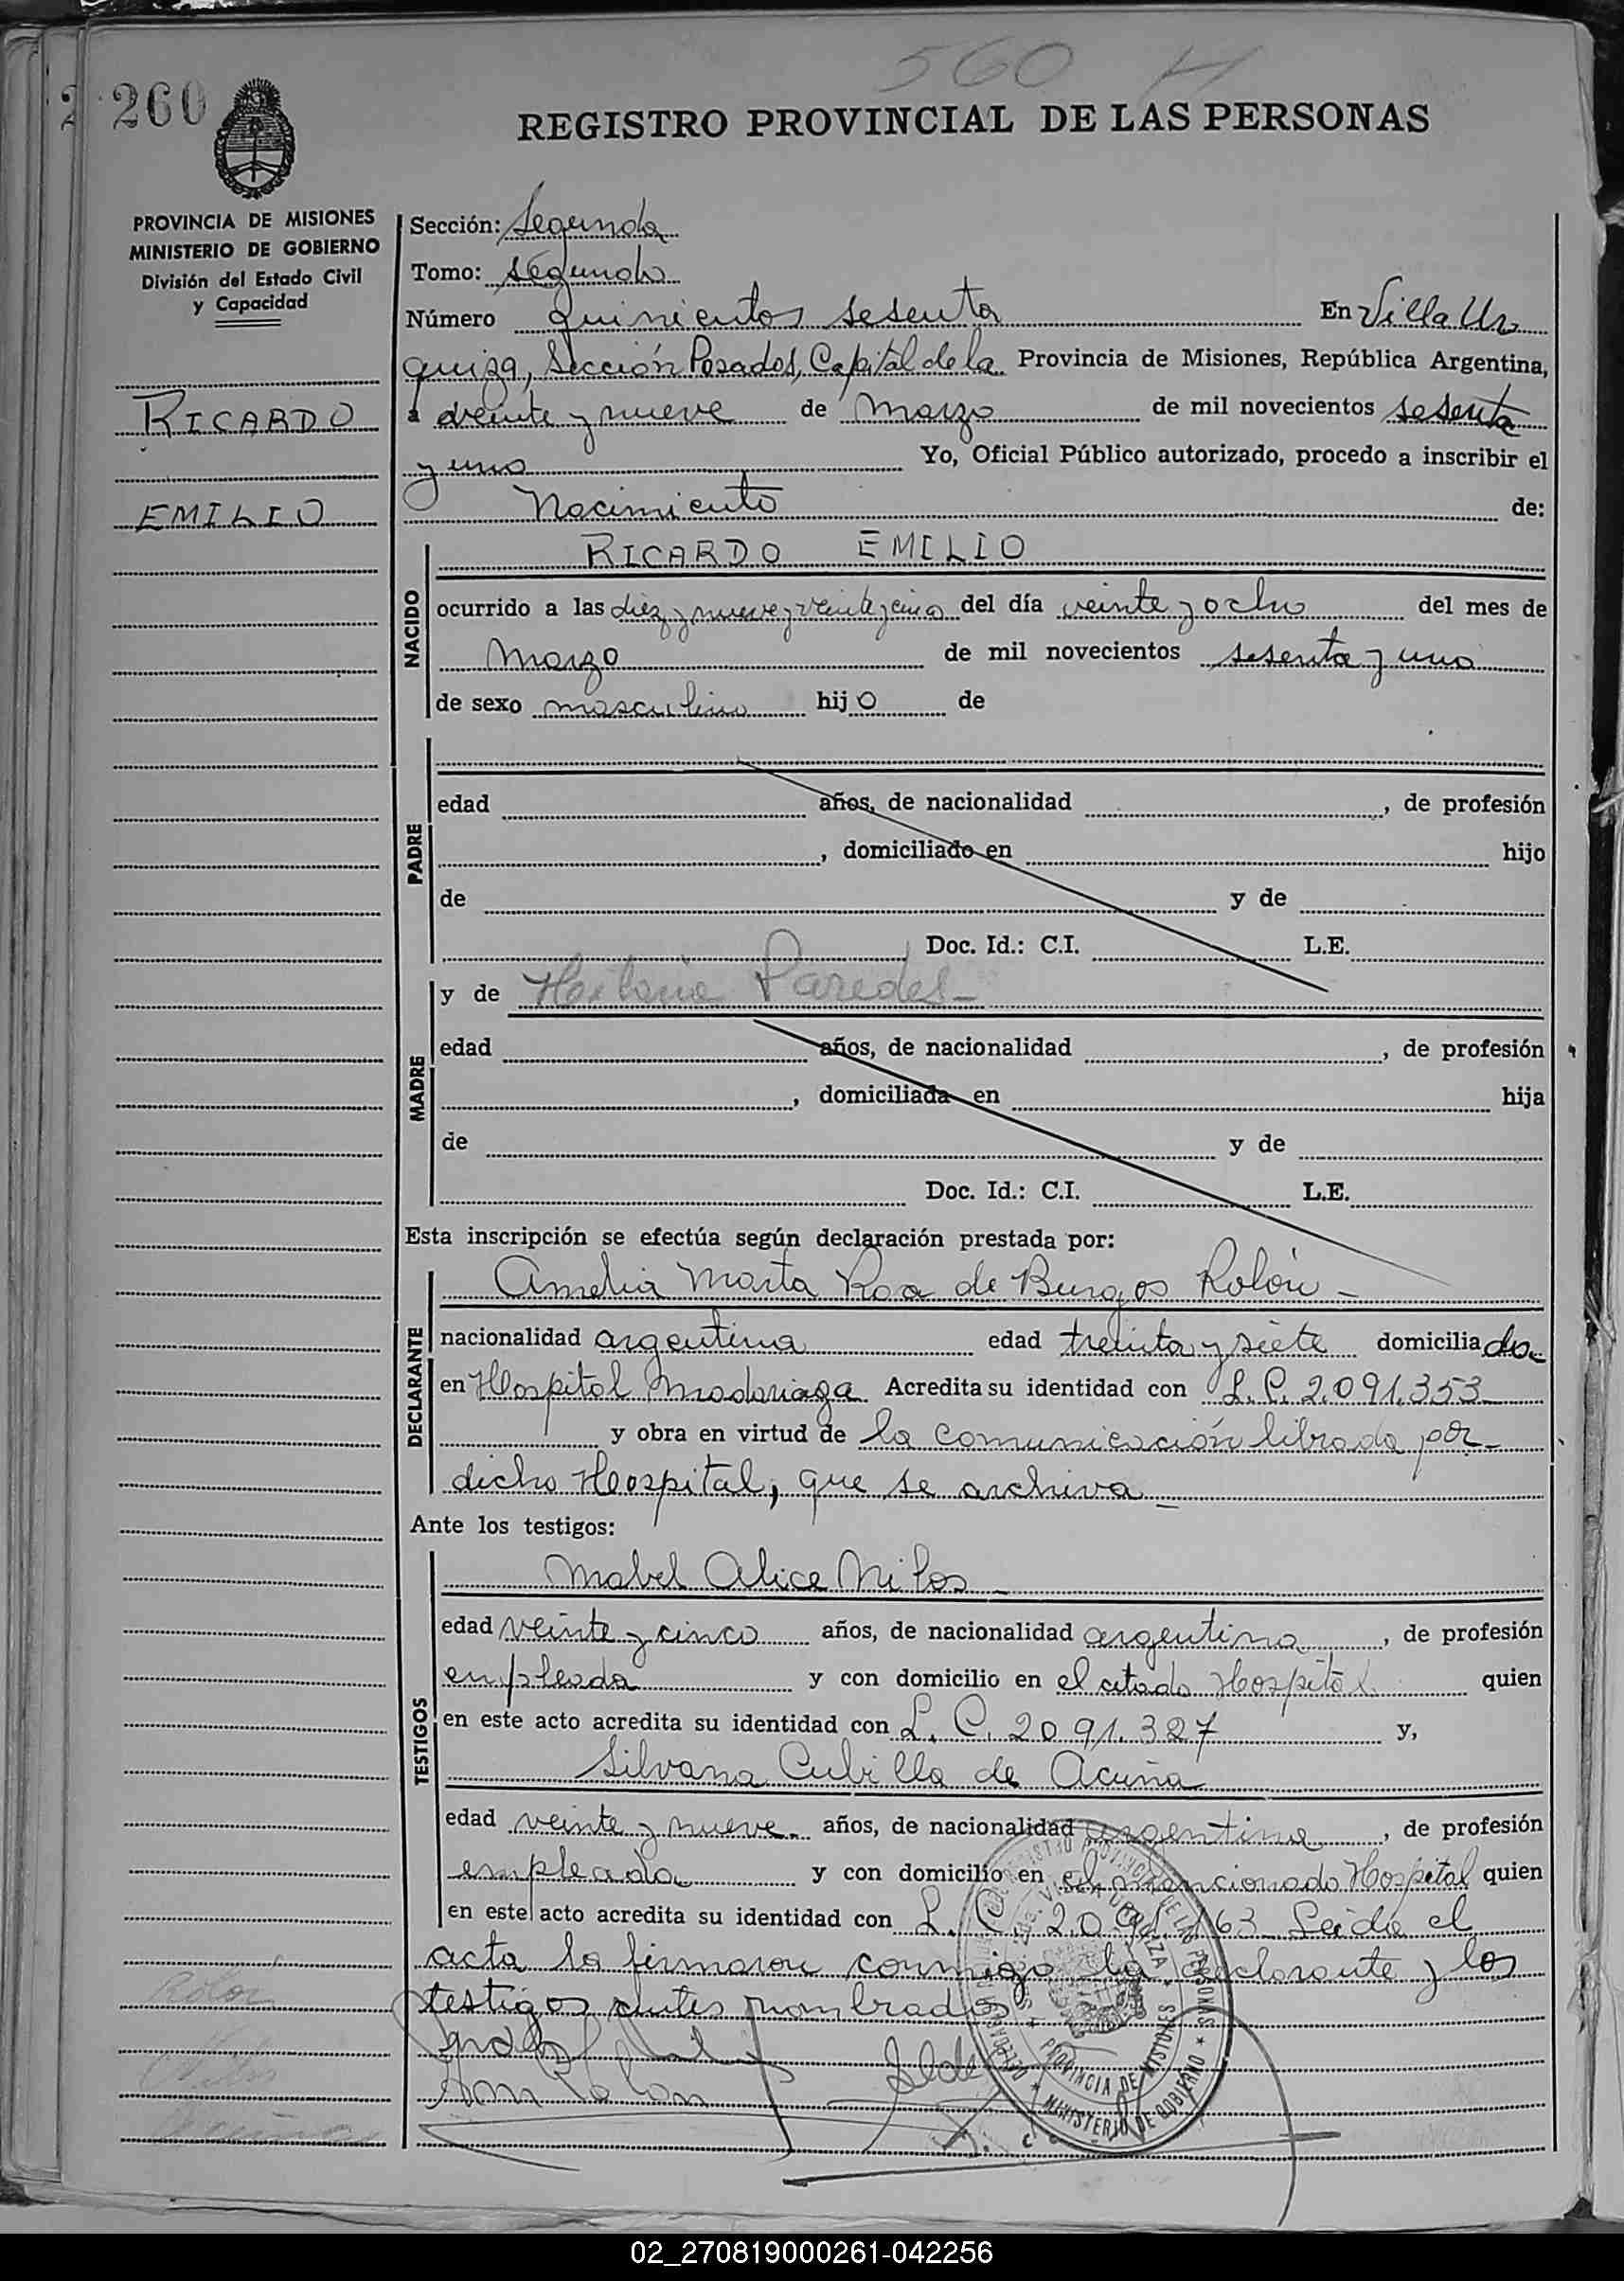 560 H
260
REGISTRO PROVINCIAL DE LAS PERSONAS
PROVINCIA DE MISIONES
MINISTERIO DE GOBIERNO
División del Estado Civil
y Capacidad
RICARDO
EMILIO
Sección: Segunda
Tomo: segundo
Número quinientos sesenta En Villa Ur
quiza, Sección Posadas, Capital de la Provincia de Misiones, República Argentina,
a veinte y nueve de marzo de mil novecientos sesenta
y uno Yo, Oficial Público autorizado, procedo a inscribir el
Nacimiento de:
NACIDO
RICARDO EMILIO
ocurrido a las diez y nueve y veinte y cinco del día veinte y ocho del mes de
marzo de mil novecientos sesenta y uno
de sexo masculino hijo de
PADRE
edad años, de nacionalidad , de profesión
, domiciliado en hijo
de y de
Doc. Id.: C.I. L.E.
MADRE
y de Paredes
edad años, de nacionalidad , de profesión
, domiciliada en hija
de y de
Doc. Id.: C.I. L.E.
Esta inscripción se efectúa según declaración prestada por:
DECLARANTE
Amelia Marta Roa de Burgos Rolón
nacionalidad argentina edad treinta y siete domiciliada
en Hospital Madariaga Acredita su identidad con L. C. 2.091.353
y obra en virtud de la comunicación librada por
dicho Hospital, que se archiva
Ante los testigos:
TESTIGOS
Mabel Alice Milos
edad veinte y cinco años, de nacionalidad argentina , de profesión
empleada y con domicilio en el citado Hospital quien
en este acto acredita su identidad con L. C. 2091.327 y,
Silvana Cubilla de Acuña
edad veinte y nueve años, de nacionalidad argentina , de profesión
empleada y con domicilio en el mencionado Hospital quien
en este acto acredita su identidad con L. C. Leida el
acta la firmaron conmigo la declarante y los
testigos antes nombrados
Rolon
PROVINCIA DE MISIONES
MINISTERIO DE GOBIERNO
02_270819000261-042256